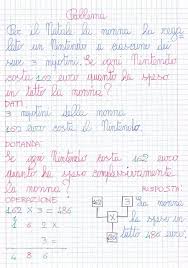 Problema
Per il Natale la nonna ha rega
lato un Nintendo a ciascuno dei
suoi 3 nipotini. Se ogni Nintendo
costa 162 euro quanto ha speso
in tutto la nonna?
DATI
3 nipotini della nonna
162 euro costa il Nintendo
DOMANDA
Se ogni Nintendo costa 162 euro
quanto ha speso complessivamente
la nonna?
RISPOSTA
OPERAZIONE
162 x 3 = 486
162
3
La nonna
1 6 2 x
ha speso in
3 =
486
tutto 486 euro.
4 8 6